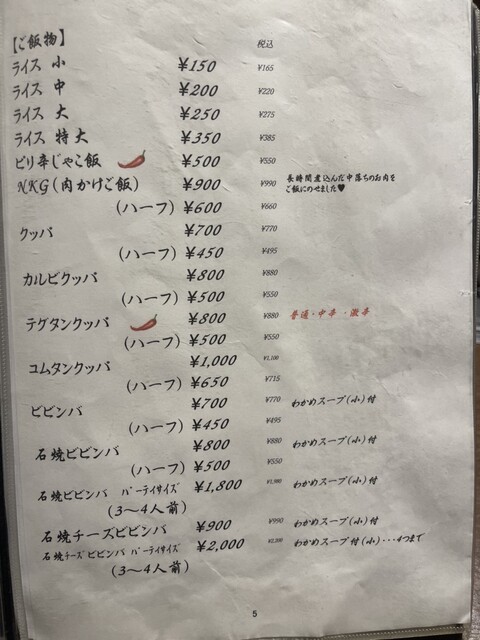 【ご飯物】 税込
ライス 小 ¥150 ¥165
ライス 中 ¥200 ¥220
ライス 大 ¥250 ¥275
ライス 特大 ¥350 ¥385
ピリ辛じゃこ飯 ¥500 ¥550
NKG(肉かけご飯) ¥900 ¥990 長時間煮込んだ中落ちのお肉を
ご飯にのせました♥
(ハーフ) ¥600 ¥660
クッパ ¥700 ¥770
(ハーフ) ¥450 ¥495
カルビクッパ ¥800 ¥880
(ハーフ) ¥500 ¥550
テグタンクッパ ¥800 ¥880 普通・中辛・激辛
(ハーフ) ¥500 ¥550
コムタンクッパ ¥1,000 ¥1,100
(ハーフ) ¥650 ¥715
ビビンバ ¥700 ¥770 わかめスープ(小)付
(ハーフ) ¥450 ¥495
石焼ビビンバ ¥800 ¥880 わかめスープ(小)付
(ハーフ) ¥500 ¥550
石焼ビビンバ パーティサイズ ¥1,800 ¥1,980 わかめスープ(小)付
(3~4人前)
石焼チーズビビンバ ¥900 ¥990 わかめスープ(小)付
石焼チーズビビンバ パーティサイズ ¥2,000 ¥2,200 わかめスープ付(小)・・・4つまで
(3~4人前)
5